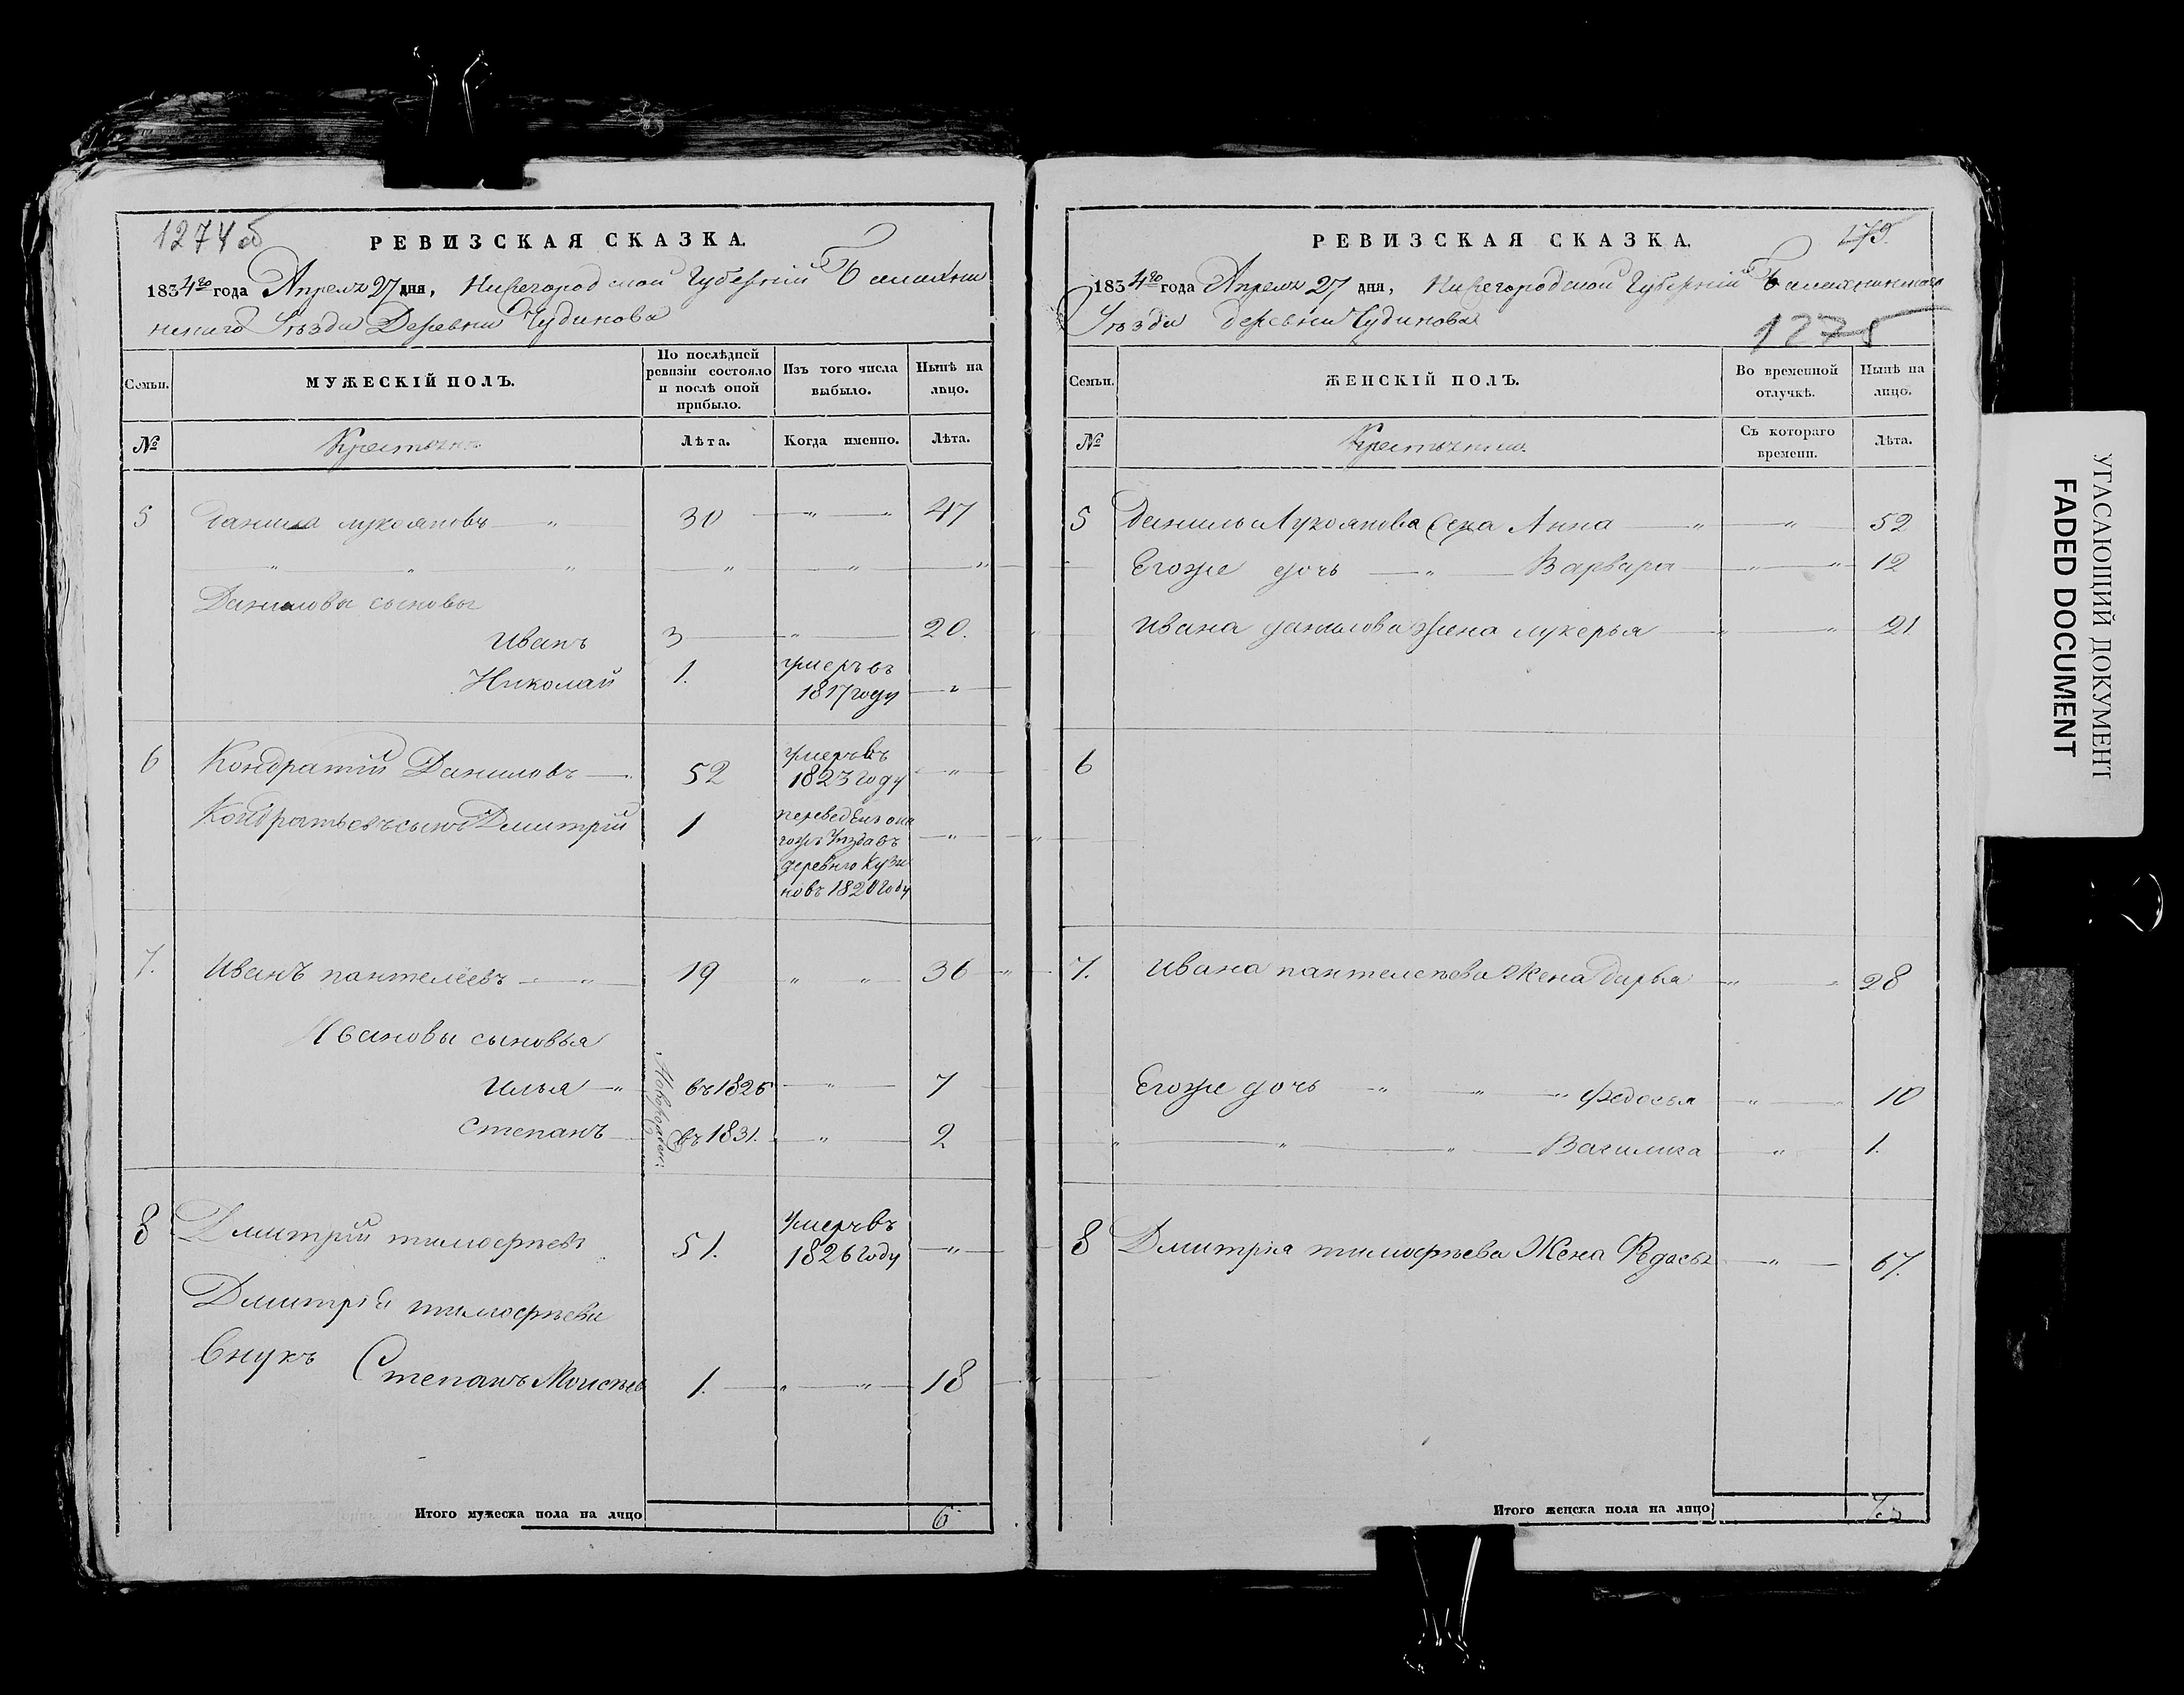 1274об
РЕВИЗСКАЯ СКАЗКА.
1834го года Апреля 27 дня, Нижегородской Губернiи Балахни
нскаго Уѣзда Деревни Чудинова
Семьи.
МУЖЕСКІЙ ПОЛЪ.
По послѣдней ревизіи состояло и послѣ оной прибыло.
Изъ того числа выбыло.
Нынѣ на лицо.
№
Крестьяне
Лѣта.
Когда именно.
Лѣта.
5 Данила лукояновъ 30 47
Даниловы сыновья
Иванъ 3 20.
Николай 1. умеръ въ
1817 году
6 Кондратiй Даниловъ 52 умеръ въ
1823 году
Кондратьевъ сынъ Дмитрiй 1 переведенъ она
гожъ Уѣзда въ
деревню Кузн
новъ 1820 году
7. Иванъ пантелеевъ 19 36
Ивановы сыновья
Новорожден:
Илья въ 1826 7
Степанъ въ 1831. 2
8 Дмитрiй тимофѣевъ 51. Умеръ въ
1826 году
Дмитрiя тимофѣева
внукъ
Степанъ Моисѣев 1. 18
Итого мужеска пола на лицо 6
РЕВИЗСКАЯ СКАЗКА.
1834го года Апреля 27 дня, Нижегородской Губернiи Балахнинскаго
Уѣзда деревни Чудинова
1275
Семьи.
ЖЕНСКІЙ ПОЛЪ.
Во временной отлучкѣ.
Нынѣ на лицо.
№
Крестьянки
Съ котораго времени.
Лѣта.
5 Данилы Лукоянова Жена Анна 52
Егоже дочь Варвара 12
Ивана данилова жена лукерья 21
6
7. Ивана пантелеева Жена Дарья 28
Егоже дочь Федосья 10
Василиса 1.
8 Дмитрiя тимофѣева Жена Федосья 67.
Итого женска пола на лицо 7.
УГАСАЮЩИЙ ДОКУМЕНТ
FADED DOCUMENT